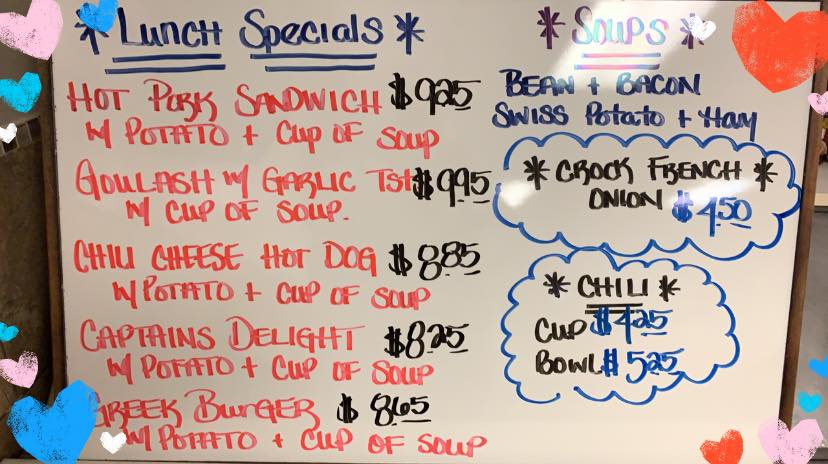 * Lunch Specials *
HOT PORK SANDWICH $9.25
W/ POTATO + CUP OF SOUP
GOULASH W/ GARLIC TST $9.95
W/ CUP OF SOUP.
CHILI CHEESE HOT DOG $8.85
W/ POTATO + CUP OF SOUP
CAPTAINS DELIGHT $8.25
W/ POTATO + CUP OF SOUP
GREEK BURGER $8.65
W/ POTATO + CUP OF SOUP
* SOUPS *
BEAN + BACON
SWISS Potato + Ham
* CROCK FRENCH *
ONION $4.50
* CHILI *
CUP $4.25
BOWL $5.25